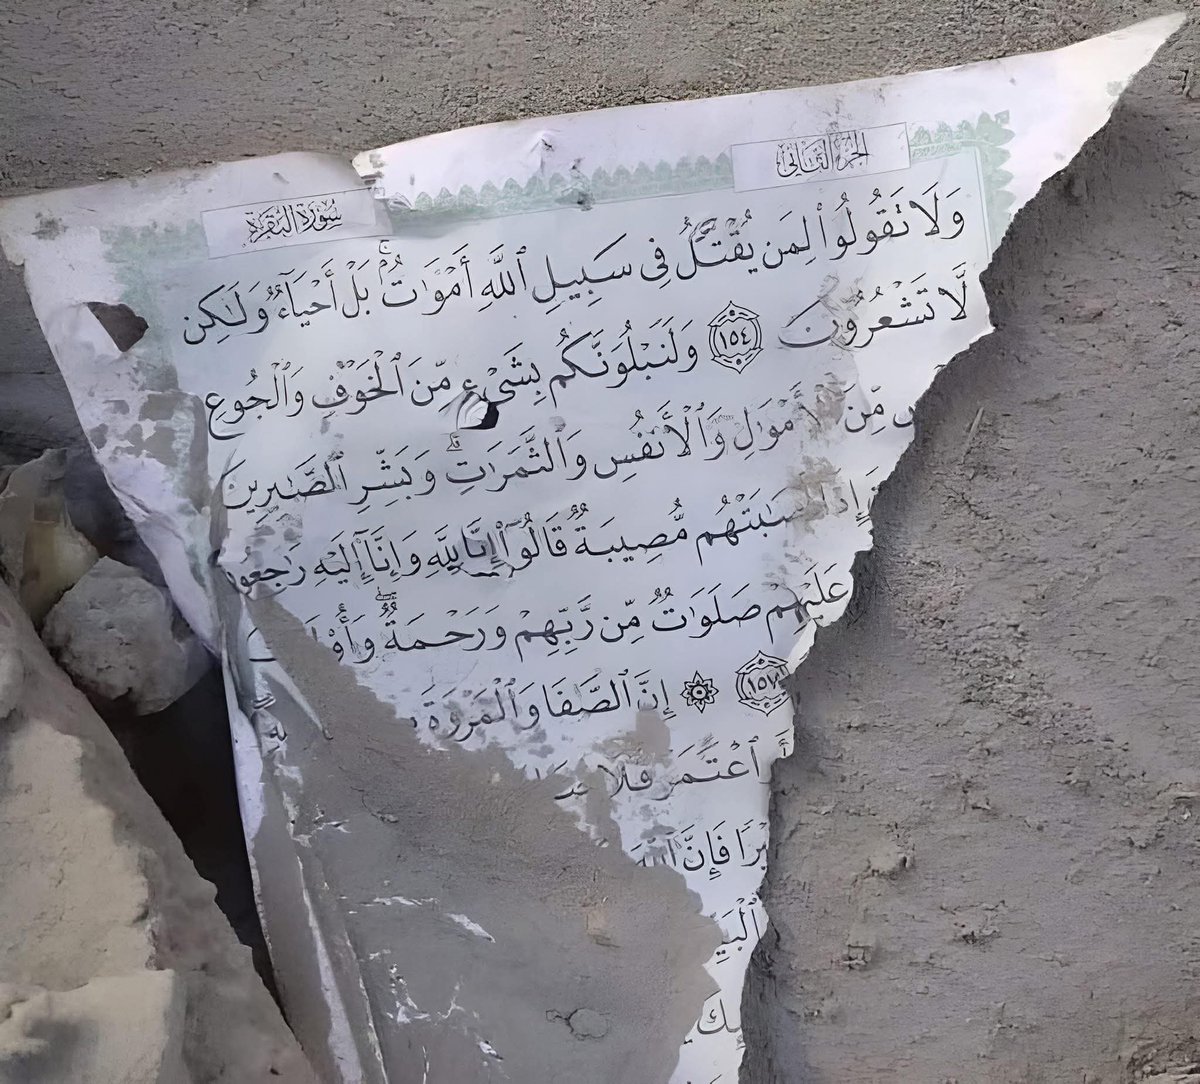 الجزء الثاني
سورة البقرة
وَلَا تَقُولُوا۟ لِمَن يُقْتَلُ فِى سَبِيلِ ٱللَّهِ أَمْوَٰتٌۢ ۚ بَلْ أَحْيَآءٌ وَلَـٰكِن
لَّا تَشْعُرُونَ ١٥٤ وَلَنَبْلُوَنَّكُم بِشَىْءٍ مِّنَ ٱلْخَوْفِ وَٱلْجُوعِ
مِّنَ ٱلْأَمْوَٰلِ وَٱلْأَنفُسِ وَٱلثَّمَرَٰتِ ۗ وَبَشِّرِ ٱلصَّـٰبِرِينَ
مُّصِيبَةٌ قَالُوٓا۟ إِنَّا لِلَّهِ وَإِنَّآ إِلَيْهِ رَٰجِعُونَ
عَلَيْهِمْ صَلَوَٰتٌ مِّن رَّبِّهِمْ وَرَحْمَةٌ ۖ
١٥٧ إِنَّ ٱلصَّفَا وَٱلْمَرْوَةَ
ٱعْتَمَرَ فَلَا
فَإِنَّ ٱللَّهَ